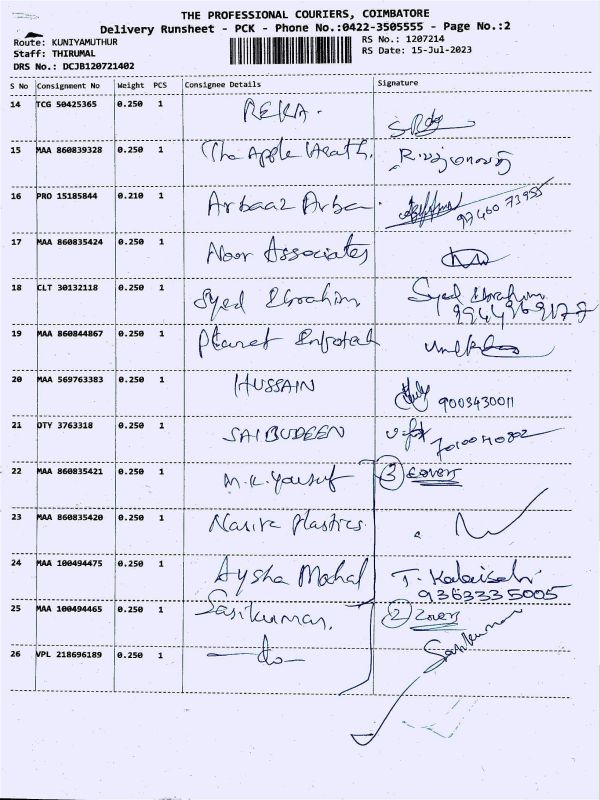 THE PROFESSIONAL COURIERS, COIMBATORE
Delivery Runsheet - PCK - Phone No.:0422-3505555 - Page No.:2
Route: KUNIYAMUTHUR
Staff: THIRUMAL
DRS No.: DCJB120721402
RS No.: 1207214
RS Date: 15-Jul-2023
S No Consignment No Weight PCS Consignee Details Signature
14 TCG 50425365 0.250 1 REKA.
15 MAA 860839328 0.250 1 The Apple Heath.
16 PRO 15185844 0.210 1 Arbaaz Arba 97460 73955
17 MAA 860835424 0.250 1 Noor Associates
18 CLT 30132118 0.250 1 Syed Ebrahim Syed Ebrahim
19 MAA 860844867 0.250 1 Planet Infotech
20 MAA 569763383 0.250 1 HUSSAIN 9003430011
21 OTY 3763318 0.250 1 SAIBUDEEN 7010040802
22 MAA 860835421 0.250 1 M.K. Yousuf 3 covers
23 MAA 860835420 0.250 1 Plastics
24 MAA 100494475 0.250 1 Aysha Mahal T. Kalaiselvi
9363335005
25 MAA 100494465 0.250 1 Sasikumar. 2 covers
26 VPL 218696189 0.250 1 -do- Sasikumar